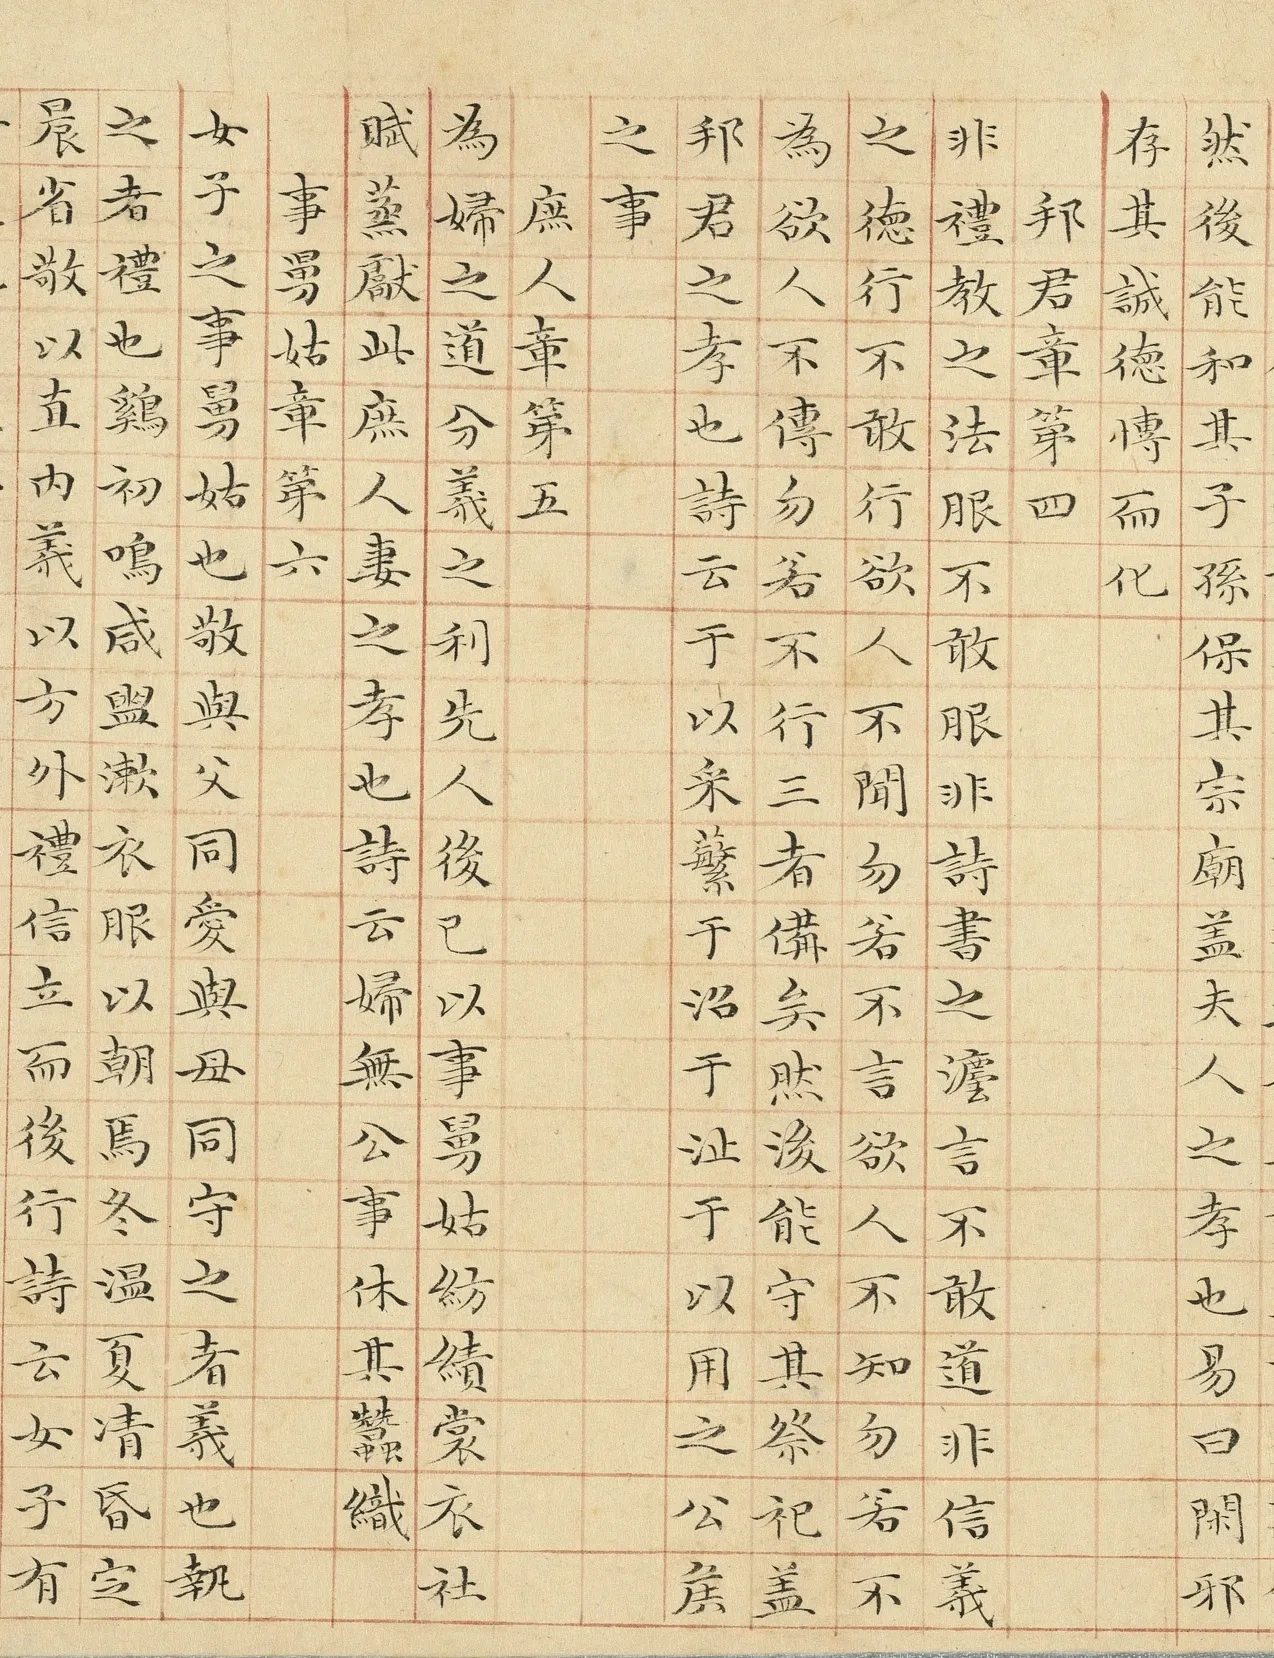 然後能和其子孫保其宗廟盖夫人之孝也易曰閑邪
存其誠德愽而化
邦君章第四
非禮教之法服不敢服非詩書之瀍言不敢道非信義
之德行不敢行欲人不聞勿若不言欲人不知勿若不
為欲人不傳勿若不行三者備矣然後能守其祭祀盖
邦君之孝也詩云于以采蘩于沼于沚于以用之公侯
之事
庶人章第五
為婦之道分義之利先人後已以事舅姑紡績裳衣社
賦蒸獻此庶人妻之孝也詩云婦無公事休其蠶織
事舅姑章第六
女子之事舅姑也敬與父同愛與母同守之者義也執
之者禮也鷄初鳴咸盥漱衣服以朝焉冬温夏凊昏定
晨省敬以直内義以方外禮信立而後行詩云女子有